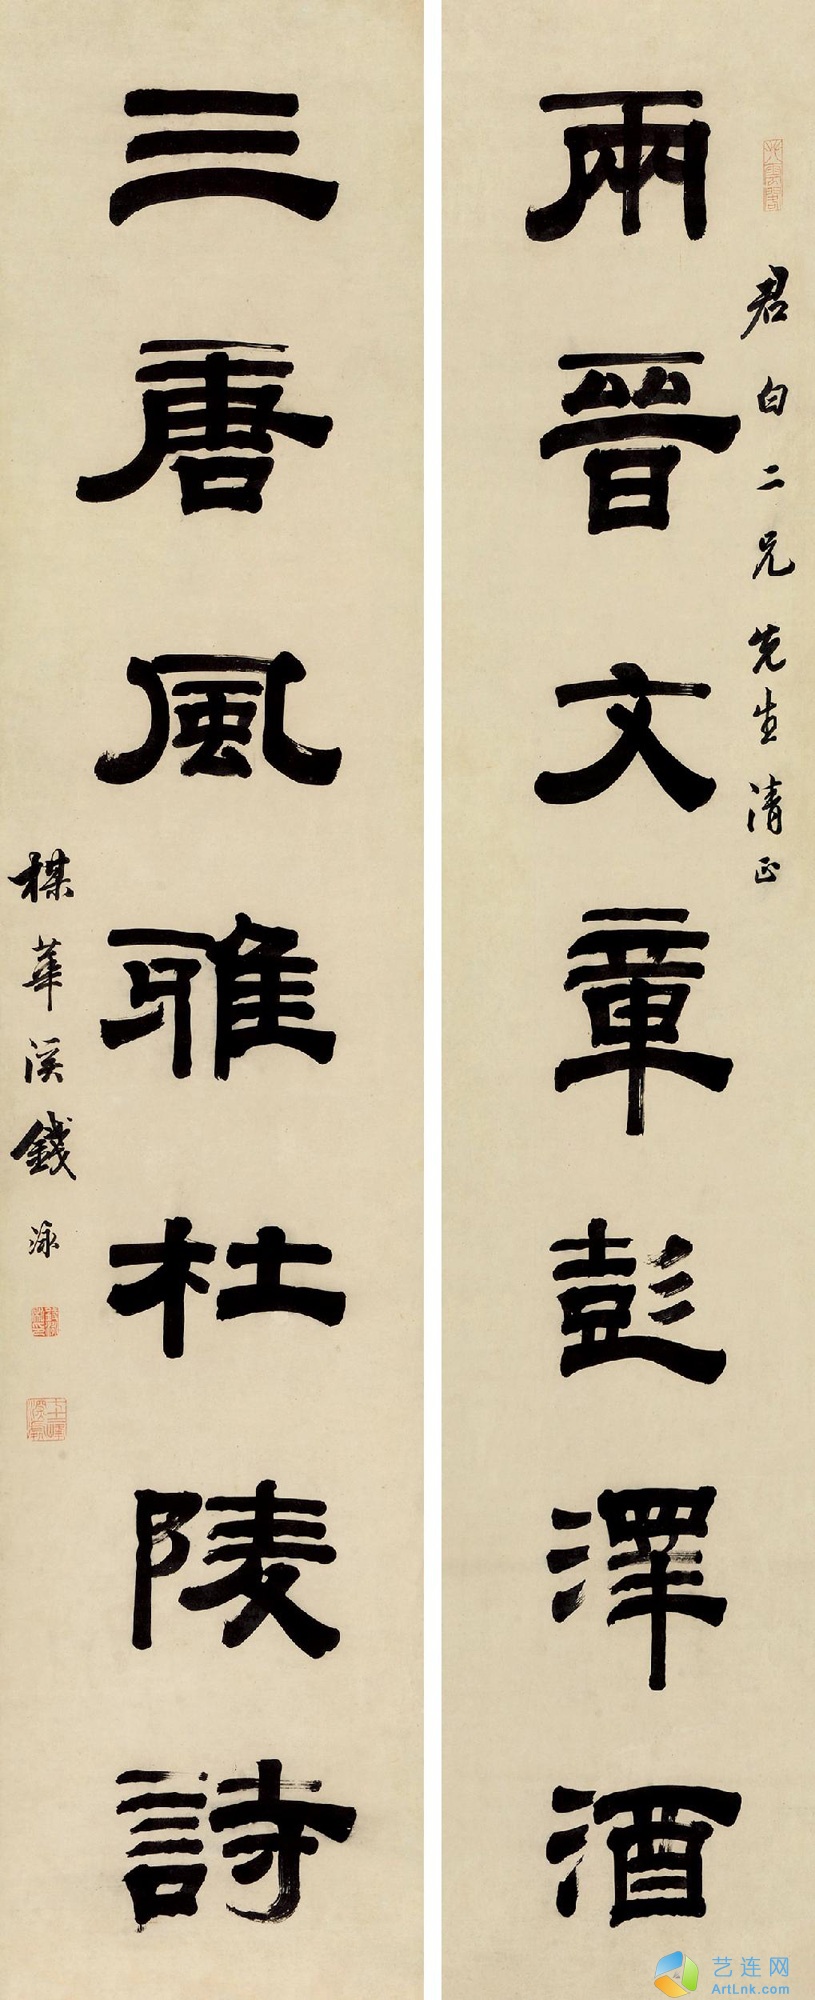 君白二兄先生清正
兩晉文章彭澤酒
三唐風雅杜陵詩
楳華溪錢泳
艺连网
ArtLnk.com